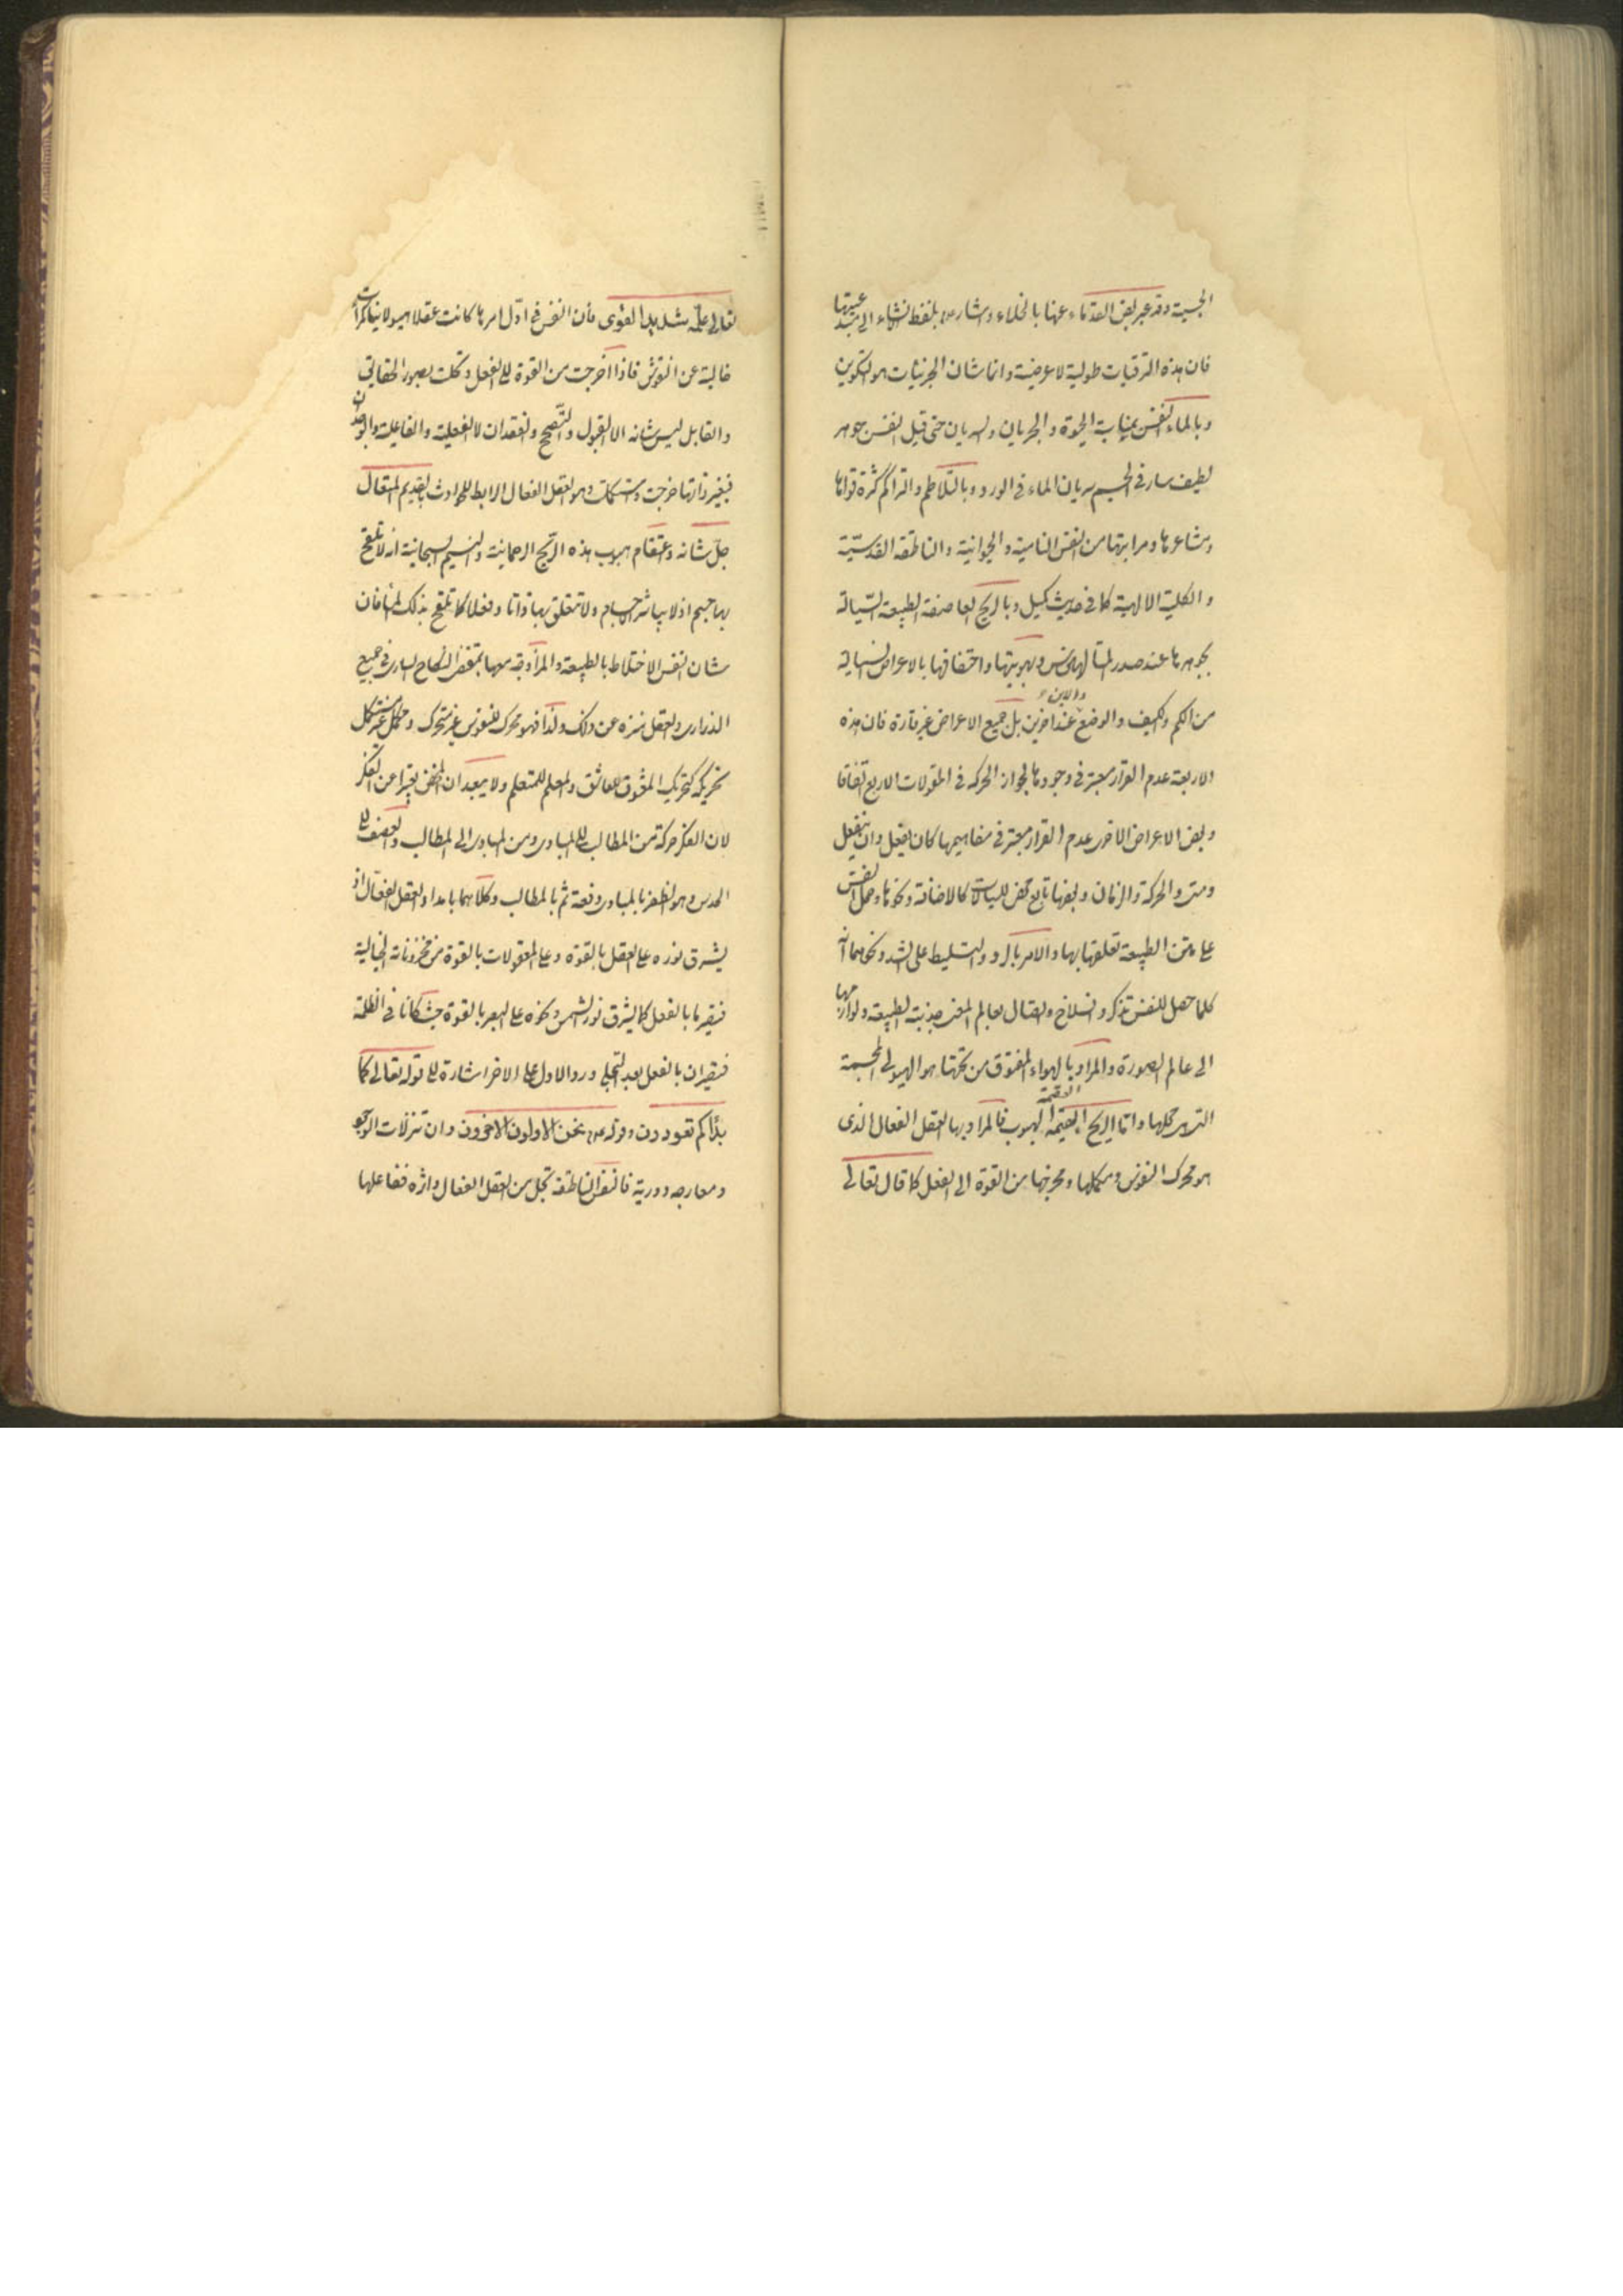 الجسمية وقد عبر بعض القدماء عنها بالخلاء و اشار بلفظ انشاء الى
فان هذه الترقيات طولية لا عرضية وانما شان الجزئيات هو التكوين
وبالماء النفس بمناسبة الحيوة والجريان والسريان حتى قيل النفس جوهر
لطيف سار فى الجسم سريان الماء فى الورد وبالتلاطم والتراكم كثرة قواها
ومشاعرها ومراتبها من النفس النامية والحيوانية والناطقة القدسيّة
والكلية الالهية كما فى حديث كميل وبالريح العاصفة الطبيعة السّيالة
بجوهرها عند صدر المتالهين وبهويتها واحتفافها بالاعراض السيالة
من الكم والكيف والوضع والاين عند اخرين بل جميع الاعراض غير قارة فان هذه
الاربعة عدم القرار معتبر فى وجودها لجواز الحركة فى المقولات الاربع اتفاقا
وبعض الاعراض الاخر عدم القرار معتبر فى مفاهيمها كان يفعل وان ينفعل
ومتى والحركة والزمان وبعضها تابع محض كالاضافة ونحوها وحمل النفس
على متن الطبيعة تعلقها بها والامر بالرد والتسليط على الشد ونحوهما انه
كلما حصل للنفس تذكر وانسلاخ واتصال بعالم المعنى جذبته الطبيعة ولوازمها
الى عالم الصورة والمراد بالهواء المفتوق من تحتها هو الهيولى المجسمة
التى هى محلها واما الريح العقيمة الهبوب فالمراد بها العقل الفعال الذى
هو محرك النفوس ومكملها ومخرجها من القوة الى الفعل كما قال تعالى
تعالى علّمه شديد القوى فان النفس فى اوّل امرها كانت عقلا هيولانيا كمرآت
خالية عن النقوش فاذا اخرجت من القوة الى الفعل وتحلت بصور الحقايق
والقابل ليس شانه الا القبول والتّصحح والفقدان لا الفعلية والفاعلية والوجدان
فبغير ذاتها خرجت واستكملت وهو العقل الفعال الرابط للحوادث بالقديم المتعال
جلّ شانه واعتقام هبوب هذه الريح الرحمانية والنسيم السبحانية انه لا تلقح
بها جسم اذ لا يباشر الاجسام ولا تتعلق بها ذاتا وفعلا كما تلقح بذلك الماء فان
شان النفس الاختلاط بالطبيعة والمزاوجة معها بمقتضى النكاح السارى فى جميع
الذرارى والعقل منزه عن ذلك ولذا فهو محرك للنفوس غير متحرك ومكمل غير مستكمل
تحريكه كتحريك المعشوق للعاشق والمعلم للمتعلم ولا يبعد ان تعبيرا عن الفكر
لان الفكر حركة من المطالب الى المبادى ومن المبادى الى المطالب والعصف الى
الحدس وهو الظفر بالمبادى دفعة ثم بالمطالب وكلاهما بامداد العقل الفعّال اذ
يشرق نوره على العقل بالقوة وعلى المعقولات بالقوة من مخزوناته الخيالية
فتصير بالفعل كما يشرق نور الشمس ونحوه على البصر بالقوة حيث كانا فى الظلمة
فتصيران بالفعل بعد التجلى ورد الاول على الاخر اشارة الى قوله تعالى كما
بدأكم تعودون وقوله نحن الاولون الاخرون وان تنزلات الوجود
ومعارجه دورية فالنفس الناطقة تجل من العقل الفعال واثره ففاعلها